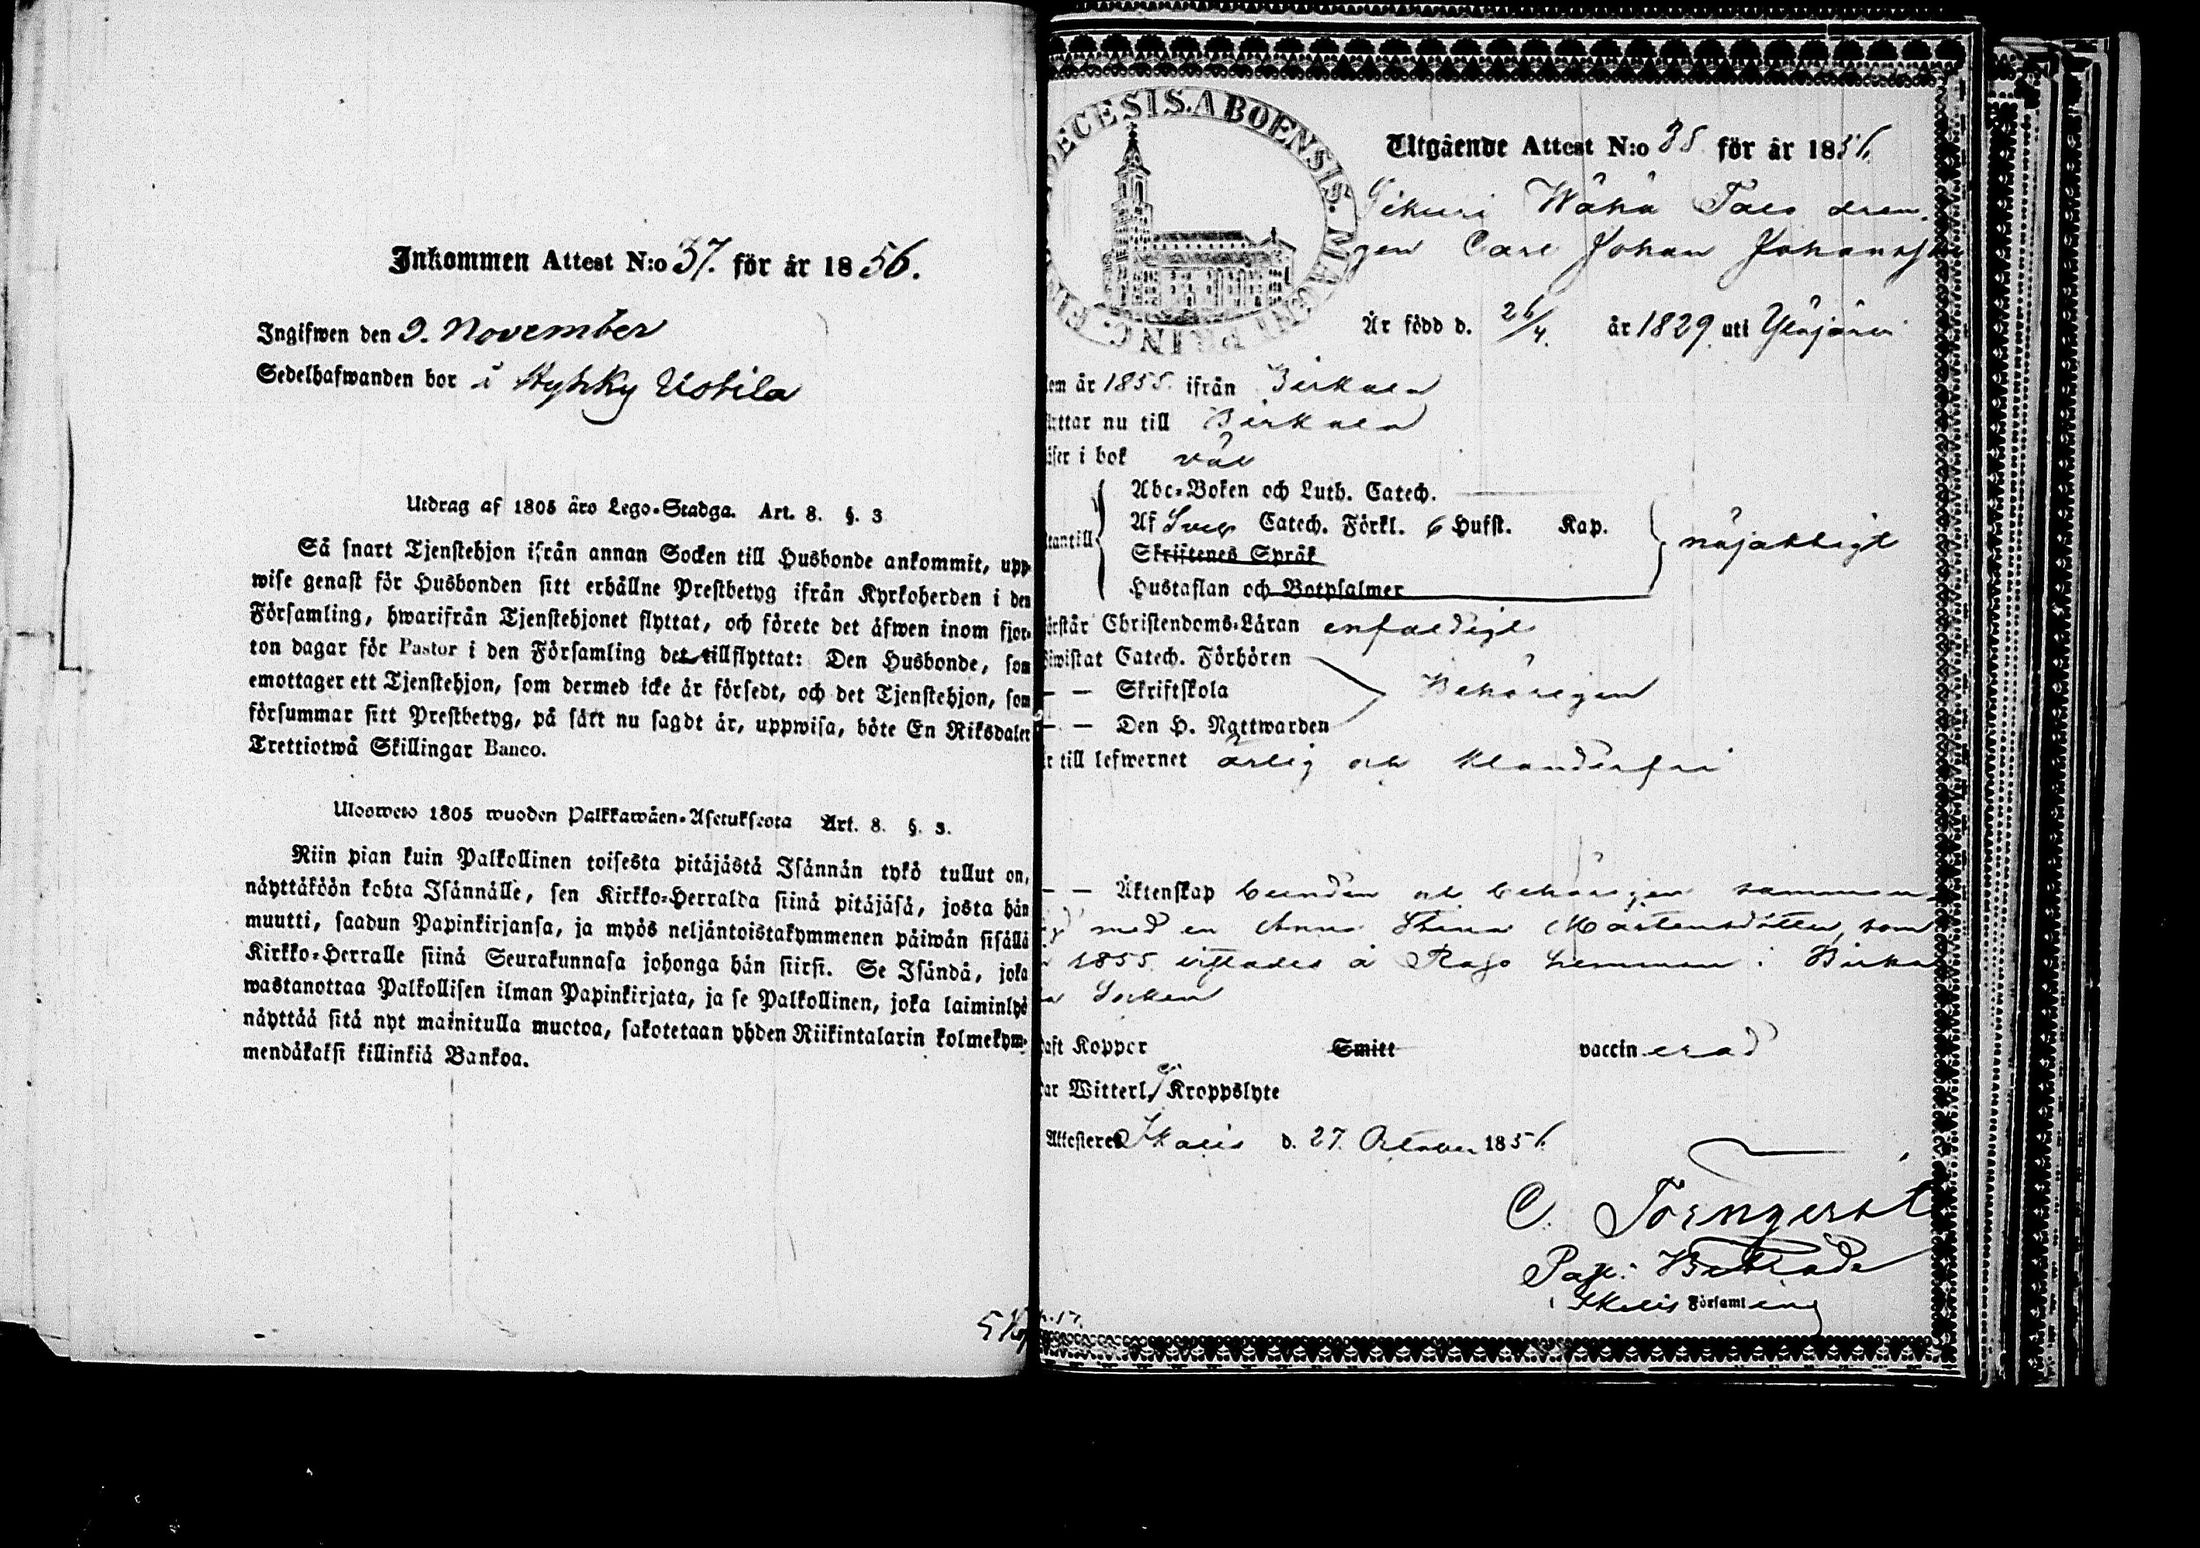 Inkommen Attest N:o 37. för år 1856.
Ingifwen den 9. November
Sedelhafwanden bor i Kyhky Uotila
Utdrag af 1805 års Lego-Stadga. Art. 8. §. 3
Så snart Tjenstehjon ifrån annan Socken till Husbonde ankommit, upp-
wise genast för Husbonden sitt erhållne Prestbetyg ifrån Kyrkoherden i den
Församling, hwarifrån Tjenstehjonet flyttat, och förete det äfwen inom fjor-
ton dagar för Pastor i den Församling det tillflyttat: Den Husbonde, som
emottager ett Tjenstehjon, som dermed icke är försedt, och det Tjenstehjon, som
försummar sitt Prestbetyg, på sätt nu sagdt är, uppwisa, böte En Riksdaler
Trettiotwå Skillingar Banco.
Ulosweto 1805 wuoden Palkkawäen-Asetuksesta Art. 8. §. 3.
Niin pian kuin Palkollinen toisesta pitäjästä Isännän tykö tullut on,
näyttäköön kohta Isännälle, sen Kirkko-Herralda siinä pitäjäsä, josta hän
muutti, saadun Papinkirjansa, ja myös neljäntoistakymmenen päiwän sisällä
Kirkko-Herralle siinä Seurakunnasa johonga hän siirsi. Se Isändä, joka
wastanottaa Palkollisen ilman Papinkirjata, ja se Palkollinen, joka laiminlyö
näyttää sitä nyt mainitulla muotoa, sakotetaan yhden Riikintalarin kolmekym-
mendäkaksi killinkiä Bankoa.
DIECESIS. ABOENSIS. MAGNI PRINC. FINL
Utgående Attest N:o 35 för år 1856.
Wähä drän-
gen Carl Johan Johansson
Är född d. 26/4. år 1829. uti Ylöjärvi
om år 1855. ifrån Birkala
yttar nu till Birkala
äser i bok väl
Abc-Boken och Luth. Catech.
Af Sveb. Catech. Förkl. 6 Hufst. Kap.
Skriftenes Språk
utantill nöjaktigt
Hustaflan och Botpsalmer
örstår Christendoms-Läran enfaldigt
iwistat Catech. Förhören
— — Skriftskola Behörigen
— — Den H. Nattwarden
är till lefwernet ärlig och klanderfri
— — Äktenskap bunden och behörigen samman-
med en Anna Stina Mårtensdotter, som
1855. å hemman i Birka-
la Socken
haft Koppor Smitt vaccinerad
har Witterl. ej Kroppslyte
Attesteres Ikalis d. 27. October 1856.
C. Törnqvist
i Ikalis Församling